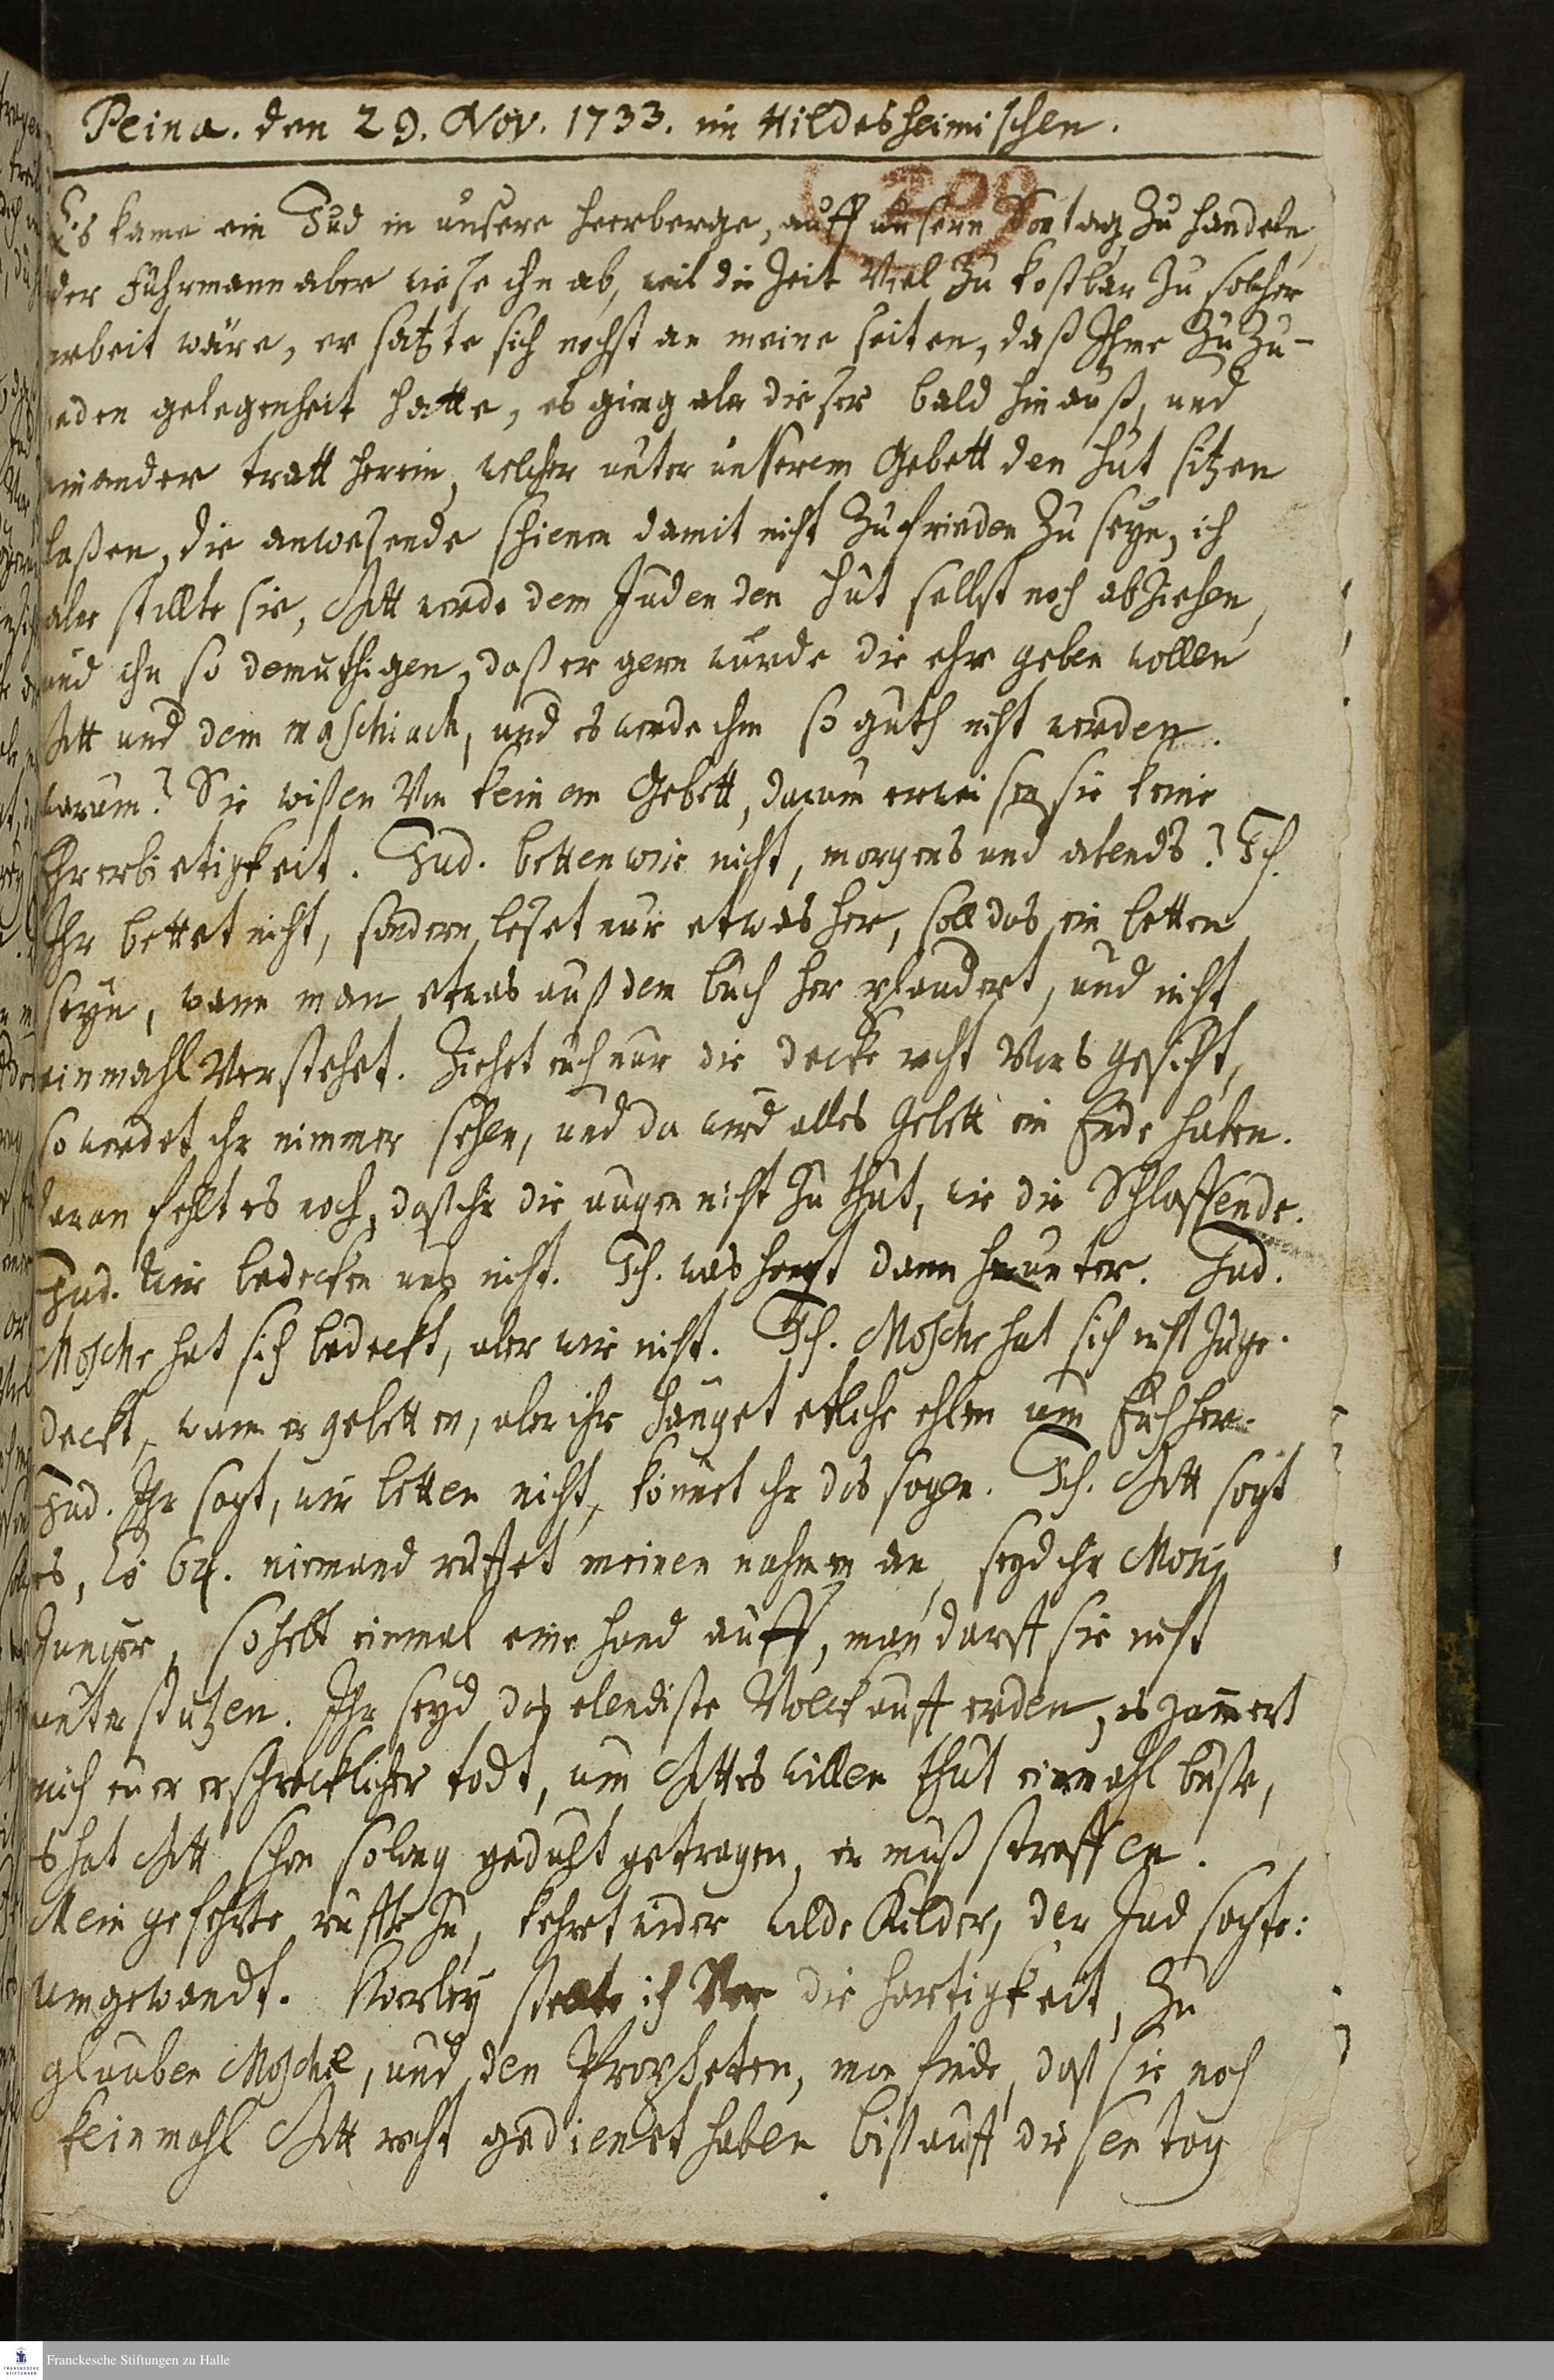 Peina. den 29. Nov. 1733. im Hildesheimischen.
209
Es kame ein Jud in unsere heerberge, auff unsern Sontag zu handeln,
der Fuhrmann aber wiese ihn ab, weil die Zeit Viel zu kostbar zu solcher
arbeit wäre, er satzte sich nechst an meine seiten, daß Ihme zu zu-
reden gelegenheit hatte, es gieng aber dieser bald hinauß, und
ein ander tratt herein, welcher unter unserem Gebett den hut sitzen
laßen, die anwesende schienen damit nicht zufrieden zu seyn, ich
aber stillte sie, Gott werde dem Juden den hut selbst noch abziehen,
und ihn so demuthigen, daß er gern wurde die ehre geben wollen
Gott und dem maschiach, und es werde ihm so guth nicht werden.
warum? Sie wißen Von keinem Gebett, darum erweisen sie keine
Ehrerbietigkeit. Jud. betten wir nicht, morgens und abends? Ich.
Ihr bettet nicht, sondern leset nur etwas her, soll das ein betten
seyn, wann man etwas auß dem buch her plaudert, und nicht
einmahl Verstehet. Ziehet euch nur die decke recht Vors gesicht,
so werdet ihr nimmer sehen, und da wird alles gebett ein Ende haben.
daran fehlt es noch, daß ihr die augen nicht zu thut, wie die Schlaffende.
Jud. Wir bedecken uns nicht. Ich. was hengt dann herunter. Jud.
Mosche hat sich bedeckt, aber wir nicht. Ich. Mosche hat sich nicht zuge-
deckt, wann er gebetten, aber ihr hänget etliche ehlen um Euch her.
Jud. Ihr sagt, wir betten nicht, könnet ihr das sagen. Ich. Gott sagt
es, Es 64. niemand ruffet meinen nahmen an, seyd ihr Mosis
Junger, so hebt einmal eine hand auff, man darff sie nicht
unterstutzen. Ihr seyd das elendiste Volck auff erden, es jam̄ert
mich euer erschrecklicher todt, um Gottes willen thut einmahl buße,
Es hat Gott schon so lang gedult getragen, er muß straffen.
Mein gefehrte ruffte zu, kehret wider wilde Kilder, der Jud sagte:
umgewandt. stelte ich Vor die hartigkeit, zu
glauben Mosche, und den Propheten, man finde, daß sie noch
keinmahl Gott recht gedienet haben biß auff diesen tag
Franckesche Stiftungen zu Halle